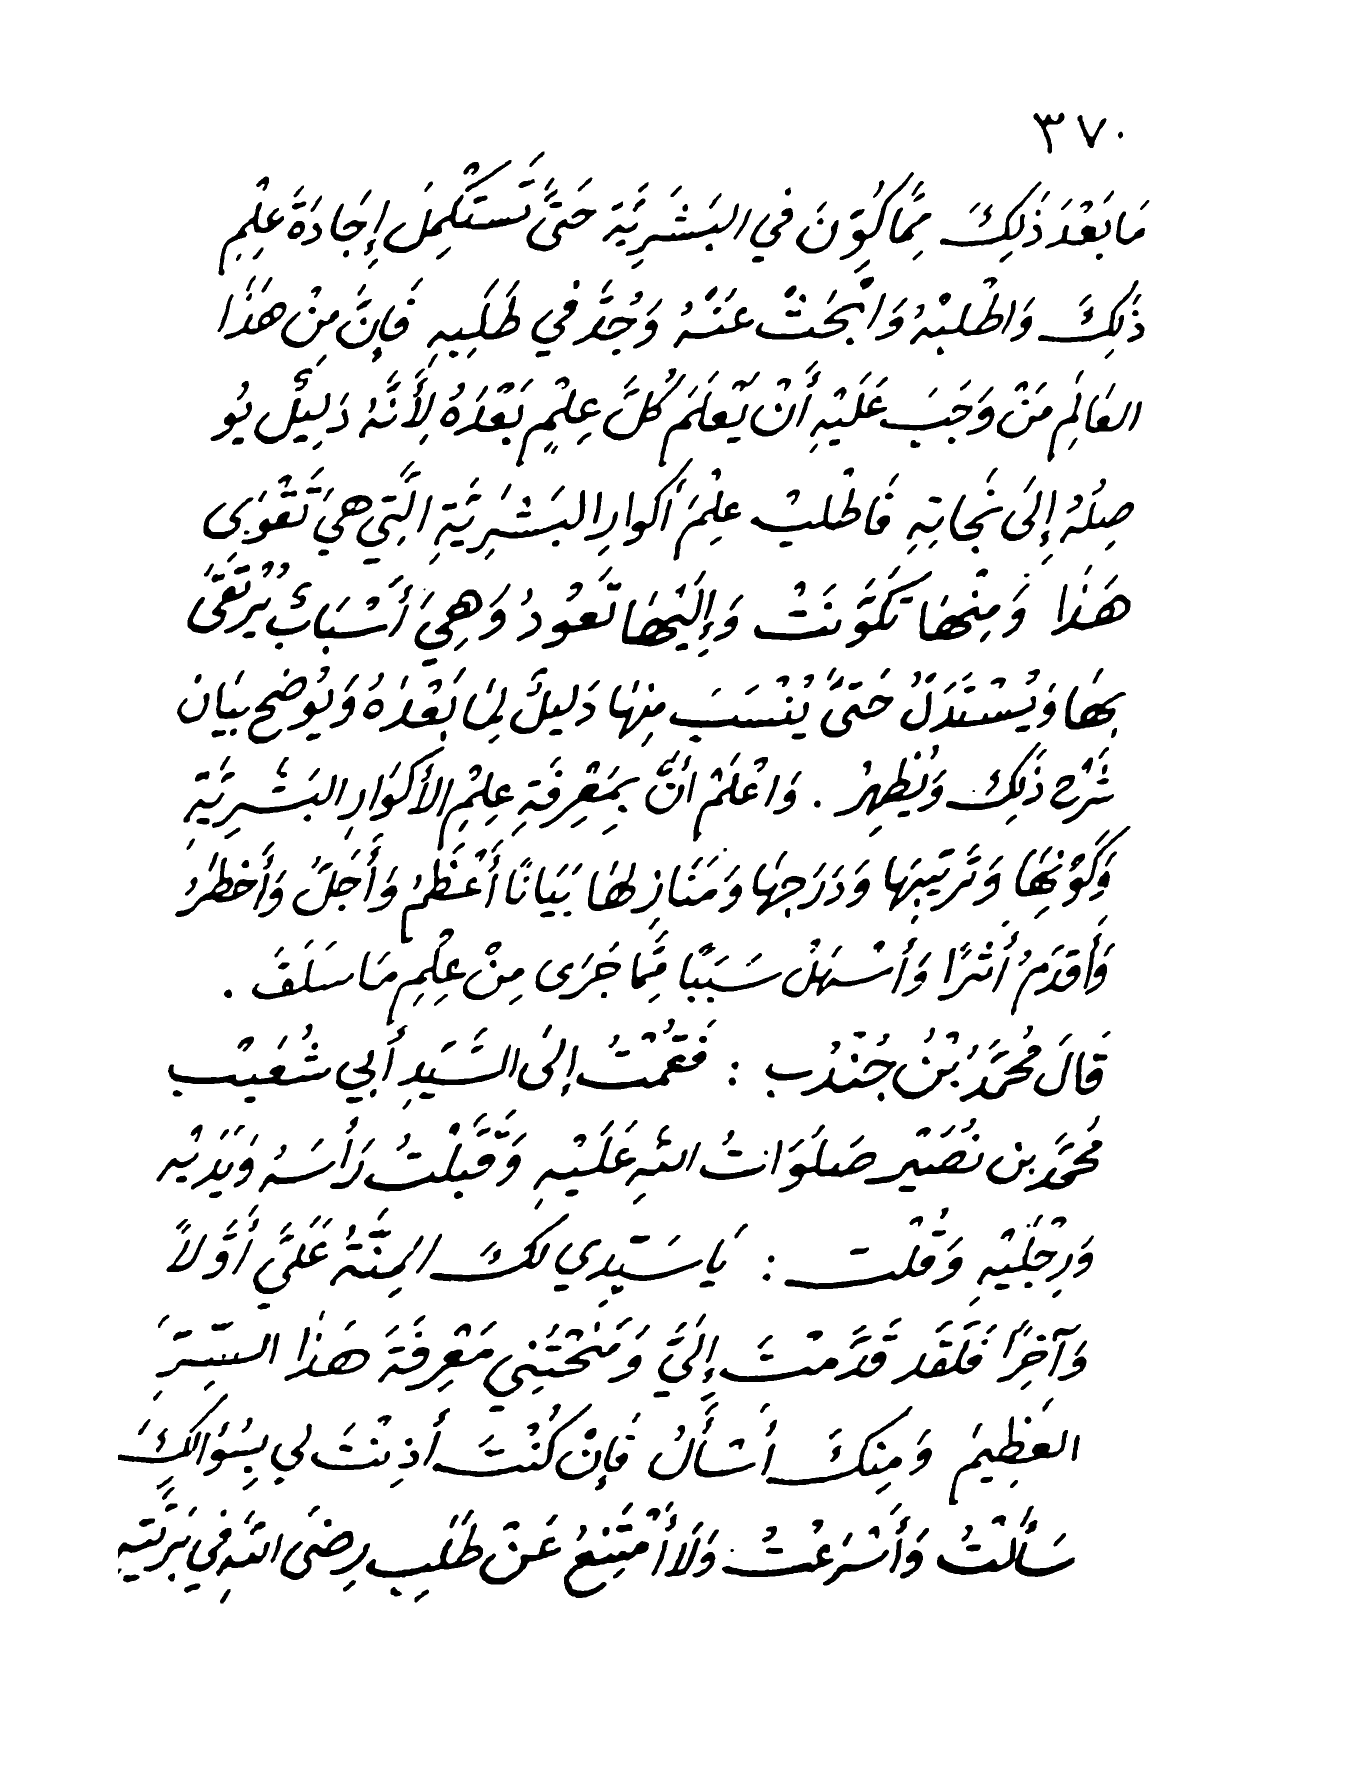 ٣٧٠
مَا بَعْدَ ذَلِكَ مِمَّا كُوِّنَ في البَشَرِيَّةِ حَتَّى تَسْتَكْمِلَ إِجَادَةَ عِلْمِ
ذَلِكَ وَاطْلبْهُ وَابْحَثْ عَنْهُ وَجُدَّ في طَلَبِهِ فَإِنَّ مِنْ هَذَا
العَالَمِ مَنْ وَجَبَ عَلَيْهِ أَنْ يَعْلَمَ كُلَّ عِلْمٍ بَعْدَهُ لِأَنَّهُ دَلِيلٌ يُو
صِلُهُ إِلَى نَجَاتِهِ فَاطْلبْ عِلْمَ أَكوارِ البَشَرِيَّةِ الَّتِي هِيَ تَقْوَى
هَذَا وَمِنْهَا تَكَوَّنَتْ وَإِلَيْهَا تَعُودُ وَهِيَ أَسْبَابٌ يُرْتَقَى
بِهَا وَيُسْتَدَلُّ حَتَّى يُنْسَبَ مِنْهَا دَليلٌ لِمَا بَعْدَهُ وَيُوضِح بيَان
شَرْحِ ذَلِكَ وَيُظْهِرُ . وَاعْلَمْ أَنَّ بِمَعْرِفَةِ عِلْمِ الأَكوَارِ البَشَرِيَّةِ
وَكَوْنِهَا وَتَرْتِيبِهَا وَدَرَجِهَا وَمَنَازِلِهَا بَيَانًا أَعْظَمُ وَأَجَلُّ وَأَخْطَرُ
وَأَقْدَمُ أَثَرًا وَأَسْهَلُ سَبَبًا مِمَّا جَرَى مِنْ عِلْمِ مَا سَلَفَ .
قَالَ مُحَمَّدُ بْنُ جُنْدُب : فَقُمْتُ إلَى السَّيِّدِ أَبي شُعَيْب
مُحَمَّد بن نُصَيْر صَلَوَاتُ اللهِ عَلَيْهِ وَقَبَّلْتُ رَأْسَهُ وَيَدَيْهِ
وَرِجْلَيْهِ وَقُلْت : يَا سَيِّدِي لكَ المِنَّةُ عَلَيَّ أَوَّلاً
وَآخِرًا فَلَقَد قَدَّمْتَ إِلَيَّ وَمَنَحْتَنِي مَعْرِفَةَ هَذَا السِّرِّ
العَظِيمِ وَمِنكَ أَسْأَلُ فَإِنْ كُنْتَ أَذِنْتَ لي بِسُؤالكَ
سَأَلْتُ وَأَسْرَعْتُ وَلَا أَمْتَنِعُ عَنْ طَلَبِ رِضَى اللهِ في بَرِيَّتِهِ